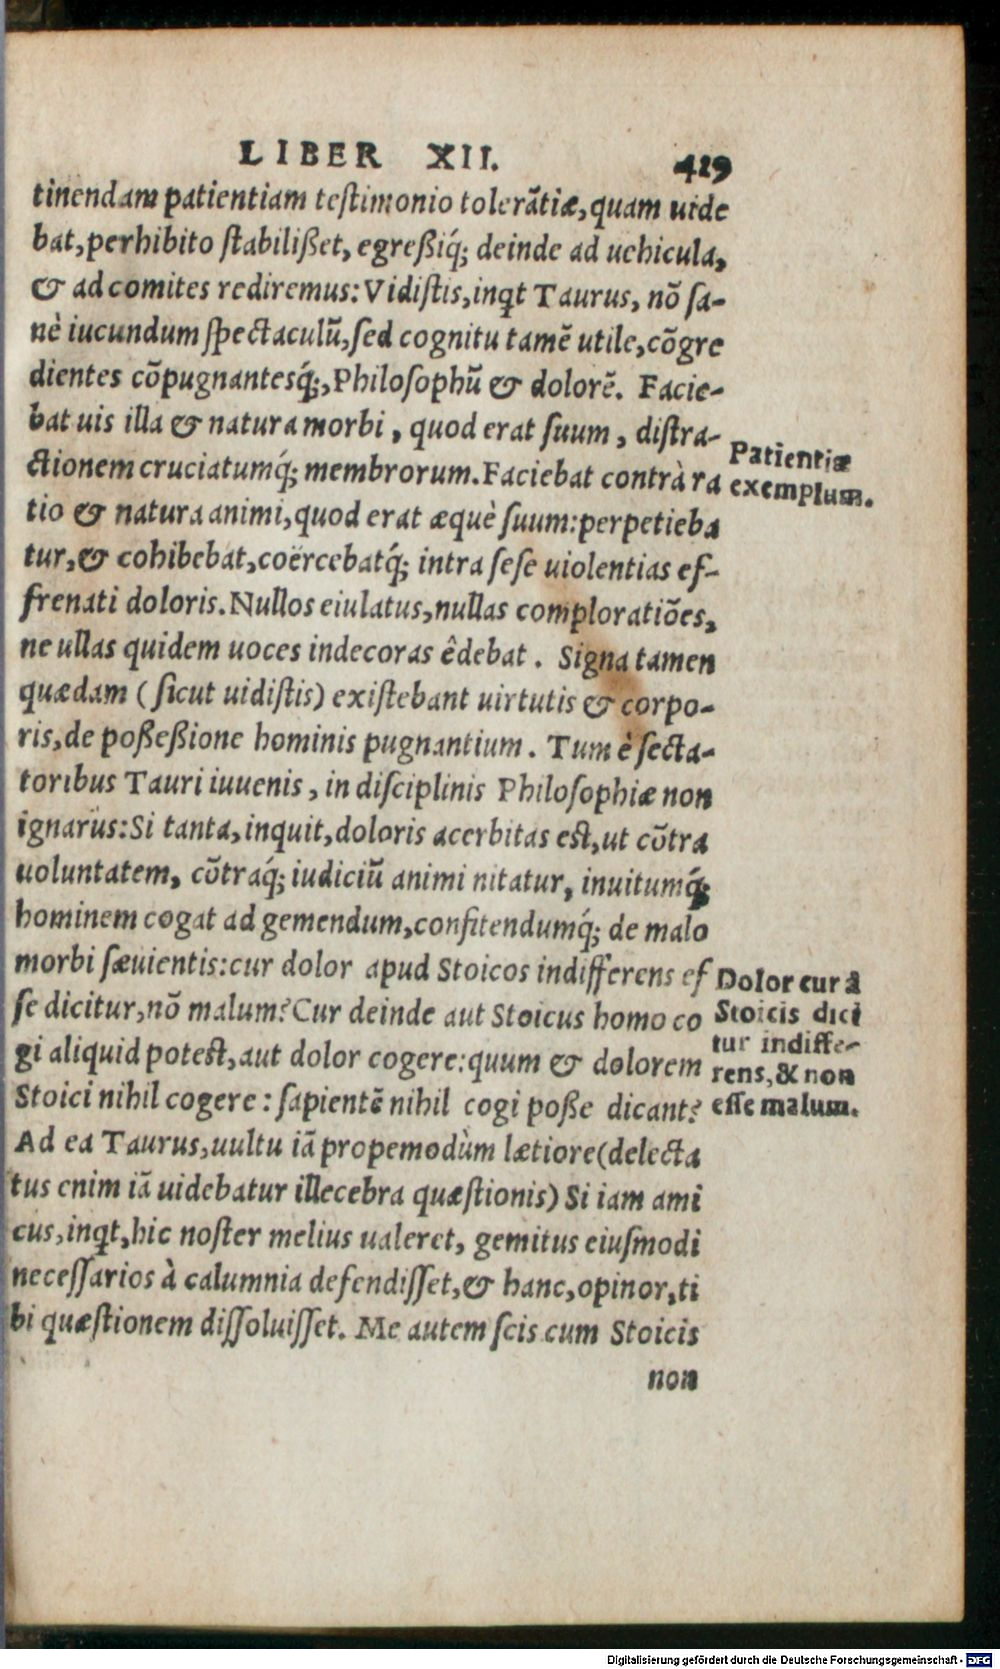 LIBER XII. 419
tinendam patientiam testimonio tolerãtiæ, quam uide
bat, perhibito stabilißet, egreßiq́; deinde ad uehicula,
& ad comites rediremus: Vidistis, inqt Taurus, nõ sa-
nè iucundum spectaculũ, sed cognitu tamẽ utile, cõgre
dientes cõpugnantesq́;, Philosophũ & dolorẽ. Facie-
bat uis illa & natura morbi, quod erat suum, distra-
ctionem cruciatumq́; membrorum. Faciebat contrà ra
Patientiæ
exemplum.
tio & natura animi, quod erat æquè suum: perpetieba
tur, & cohibebat, coërcebatq́; intra sese uiolentias ef-
frenati doloris. Nullos eiulatus, nullas comploratiões,
ne ullas quidem uoces indecoras êdebat. Signa tamen
quædam (sicut uidistis) existebant uirtutis & corpo-
ris, de poßeßione hominis pugnantium. Tum è secta-
toribus Tauri iuuenis, in disciplinis Philosophiæ non
ignarus: Si tanta, inquit, doloris acerbitas est, ut cõtra
uoluntatem, cõtraq́; iudiciũ animi nitatur, inuitumq́;
hominem cogat ad gemendum, confitendumq́; de malo
morbi sæuientis: cur dolor apud Stoicos indifferens es
se dicitur, nõ malum? Cur deinde aut Stoicus homo co
gi aliquid potest, aut dolor cogere: quum & dolorem
Stoici nihil cogere: sapientẽ nihil cogi poße dicant?
Dolor cur à
Stoicis dici
tur indiffe-
rens, & non
esse malum.
Ad ea Taurus, uultu iã propemodùm lætiore (delecta
tus enim iã uidebatur illecebra quæstionis) Si iam ami
cus, inqt, hic noster melius ualeret, gemitus eiusmodi
necessarios à calumnia defendisset, & hanc, opinor, ti
bi quæstionem dissoluisset. Me autem scis cum Stoicis
non
Digitalisierung gefördert durch die Deutsche Forschungsgemeinschaft - DFG